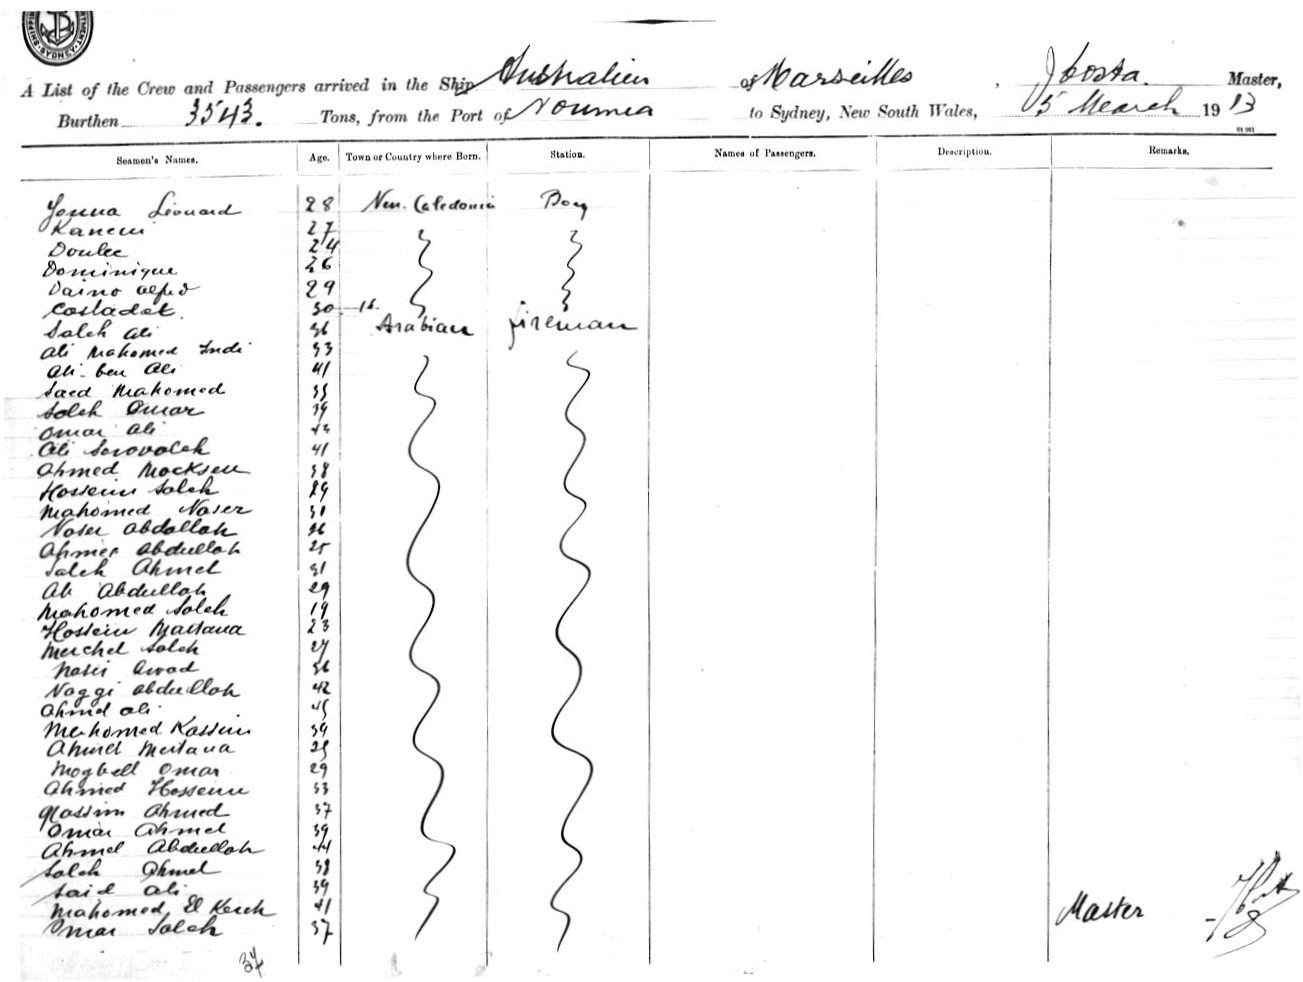 SYDNEY
A List of the Crew and Passengers arrived in the Ship Australien of Marseilles, J Costa Master,
Burthen 3543. Tons, from the Port of Noumea to Sydney, New South Wales, 5 March 1913
Seamen's Names. Age. Town or Country where Born. Station. Names of Passengers. Description. Remarks.
Léonard 28 New. Caledonia Boy
27
Doulee 24
Dominique 26
Daino Alfred 29
Costadet. 30 16.
Saleh Ali 36 Arabian fireman
Ali Mahomed Indi 33
Ali ben Ali 41
Saed Mahomed 35
Saleh Omar 39
Omar Ali 43
Ali 41
Ahmed Mocksen 38
Hossein Saleh 29
Mahomed Naser 31
Naser Abdallah 36
Ahmed Abdullah 25
Saleh Ahmed 31
Ali Abdullah 29
Mahomed Saleh 19
Hossein Mattana 23
Saleh 27
Nasir Awad 36
Naggi Abdullah 42
Ahmed Ali 45
Mahomed Kassim 39
Ahmed 25
Mogbell Omar 29
Ahmed Hossein 33
Ahmed 37
Omar Ahmed 39
Ahmed Abdullah 44
Saleh Ahmed 38
Said Ali 39
Mahomed El 41 Master
Omar Saleh 37
37